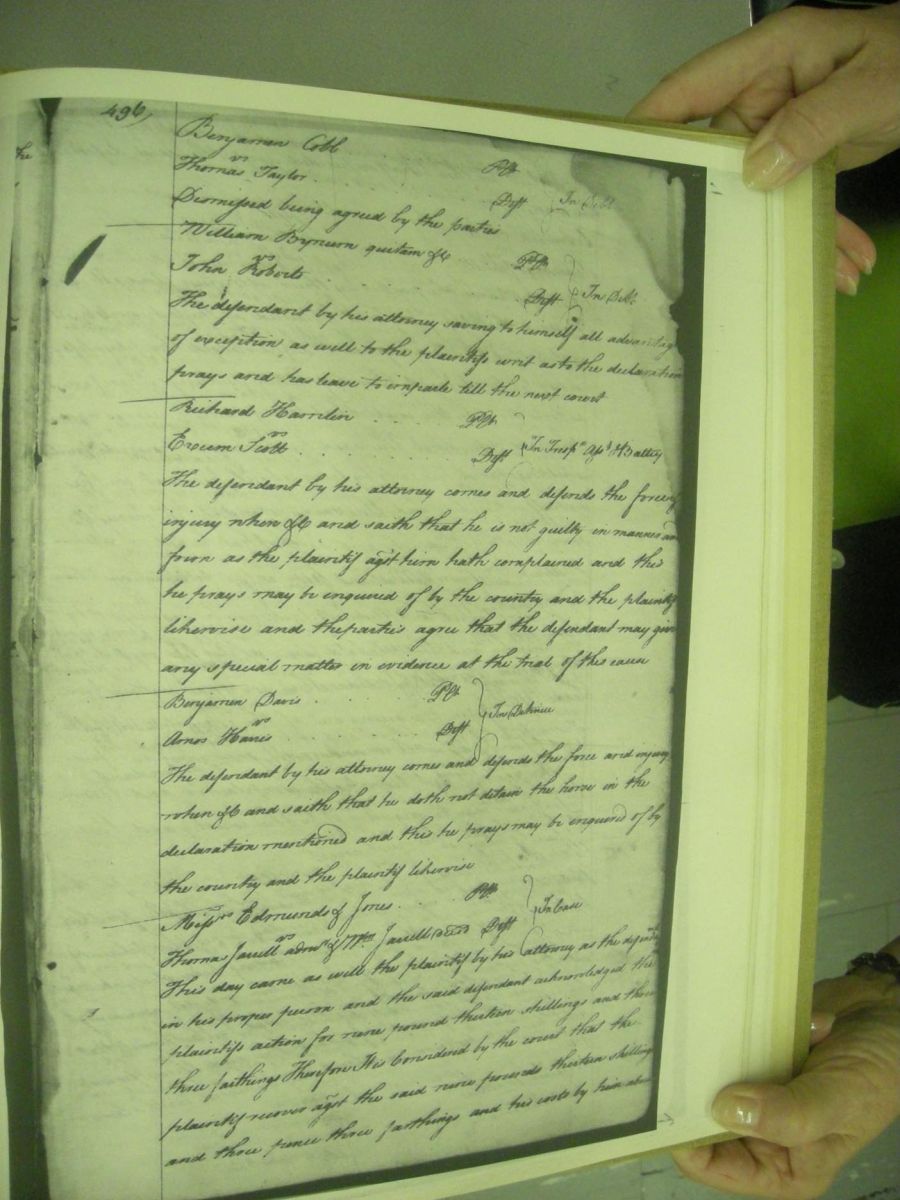 496/
Benjamin Cobb . . . Plt
vs
Thomas Taylor . . . Deft } In Debt
Dismissed being agreed by the parties
William Bynum quitam &c Plt
vs
John Roberts . . . Deft } In Debt
The defendant by his attorney saving to himself all advantage
of exception as well to the plaintifs writ as to the declaration
prays and has leave to imparle till the next court
Richard Hamlin . . . . Plt
vs
Exum Scott . . . . Deft } In Tresps Asst & Battery
The defendant by his attorney comes and defends the force &
injury when &c and saith that he is not guilty in manner and
form as the plaintif agst him hath complained and this
he prays may be enquired of by the country and the plaintif
likewise and the parties agree that the defendant may give
any special matter in evidence at the trial of this cause
Benjamin Davis . . . . Plt
vs
Amos Harris . . . . Deft } In Detinue
The defendant by his attorney comes and defends the force and injury
when &c and saith that he doth not detain the horse in the
declaration mentioned and this he prays may be enquired of by
the country and the plaintif likewise
Missrs Edmunds & Jones . . . Plt
vs
Thomas Jarrell admr of Wm Jarrell decd Deft } In Case
This day came as well the plaintif by his attorney as the defendt
in his proper person and the said defendant acknowledged the
plaintifs action for nine pound thirteen shillings and three
three farthings Therefore It is Considered by the court that the
plaintif recover agst the said nine pounds thirteen shillings
and three pence three farthings and his costs by him about